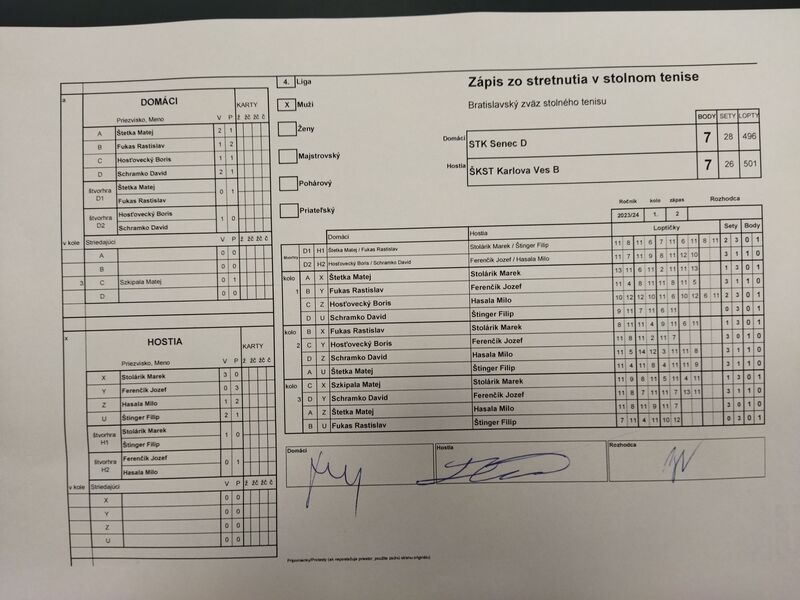 Zápis zo stretnutia v stolnom tenise
Bratislavský zväz stolného tenisu
4. Liga
X Muži
Ženy
Majstrovský
Pohárový
Priateľský
BODY SETY LOPTY
Domáci STK Senec D 7 28 496
Hostia ŠKST Karlova Ves B 7 26 501
Ročník kolo zápas Rozhodca
2023/24 1. 2
a
DOMÁCI KARTY
Priezvisko, Meno V P ž žč žč č
A Štetka Matej 2 1
B Fukas Rastislav 1 2
C Hosťovecký Boris 1 1
D Schramko David 2 1
štvorhra D1 Štetka Matej 0 1
Fukas Rastislav
štvorhra D2 Hosťovecký Boris 1 0
Schramko David
v kole Striedajúci V P ž žč žč č
A 0 0
B 0 0
3 C Szkipala Matej 0 1
D 0 0
x
HOSTIA KARTY
Priezvisko, Meno V P ž žč žč č
X Stolárik Marek 3 0
Y Ferenčík Jozef 0 3
Z Hasala Milo 1 2
U Štinger Filip 2 1
štvorhra H1 Stolárik Marek 1 0
Štinger Filip
štvorhra H2 Ferenčík Jozef 0 1
Hasala Milo
v kole Striedajúci V P ž žč žč č
X 0 0
Y 0 0
Z 0 0
U 0 0
Domáci Hostia Loptičky Sety Body
D1 H1 Štetka Matej / Fukas Rastislav Stolárik Marek / Štinger Filip 11 8 11 6 7 11 6 11 8 11 2 3 0 1
D2 H2 Hosťovecký Boris / Schramko David Ferenčík Jozef / Hasala Milo 11 7 11 9 8 11 12 10 3 1 1 0
kolo 1
A X Štetka Matej Stolárik Marek 13 11 6 11 2 11 11 13 1 3 0 1
B Y Fukas Rastislav Ferenčík Jozef 11 4 8 11 11 8 11 5 3 1 1 0
C Z Hosťovecký Boris Hasala Milo 10 12 12 10 11 6 10 12 6 11 2 3 0 1
D U Schramko David Štinger Filip 9 11 7 11 6 11 0 3 0 1
kolo 2
B X Fukas Rastislav Stolárik Marek 8 11 11 4 9 11 6 11 1 3 0 1
C Y Hosťovecký Boris Ferenčík Jozef 11 8 11 2 11 7 3 0 1 0
D Z Schramko David Hasala Milo 11 5 14 12 3 11 11 8 3 1 1 0
A U Štetka Matej Štinger Filip 11 4 11 8 4 11 11 9 3 1 1 0
kolo 3
C X Szkipala Matej Stolárik Marek 11 9 8 11 5 11 4 11 1 3 0 1
D Y Schramko David Ferenčík Jozef 11 8 11 7 11 13 11 3 1 1 0
A Z Štetka Matej Hasala Milo 11 8 11 9 11 7 3 0 1 0
B U Fukas Rastislav Štinger Filip 7 11 4 11 10 12 0 3 0 1
Domáci Hostia Rozhodca
Pripomienky/Protesty (ak nepostačuje priestor, použite zadnú stranu originálu)